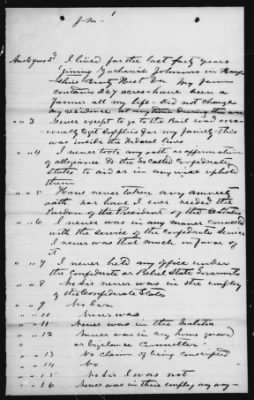 Ans to Ques 2d I lived for the last forty years
joining Zachariah Johnsons in Hamp
shire County West Va My farm
contains 267 acres have been a
Farmer all my life - Did not change
my residence at anytime during the war
" " 3 Never except to go to the Rail road occa-
sionally to get supplies for my family This
was inside the Federal lines
" " 4 I never took any oath or affirmation
of allegiance to the so called Confederate
States to aid or in any wise uphold
them
" " 5 Have never taken any amnesty
oath nor have I ever needed the
Pardon of the President of the U States
" " 6 I never was in any manner connected
with the service of the Confederate Service
I never was that much in favor of
it
" " 7 I never held any office under
the Confederate or Rebel State Governmts
" " 8 No Sir never was in the employ
of the Confederate States
" " 9 No Sir
" " 10 Never was
" " 11 Never was in the Militia
" " 12 Never was in any home guard
or Vigilance Committee
" " 13 No claim of being conscripted
" " 14 No
" " 15 No Sir I was not
" " 16 Never was in their employ any way